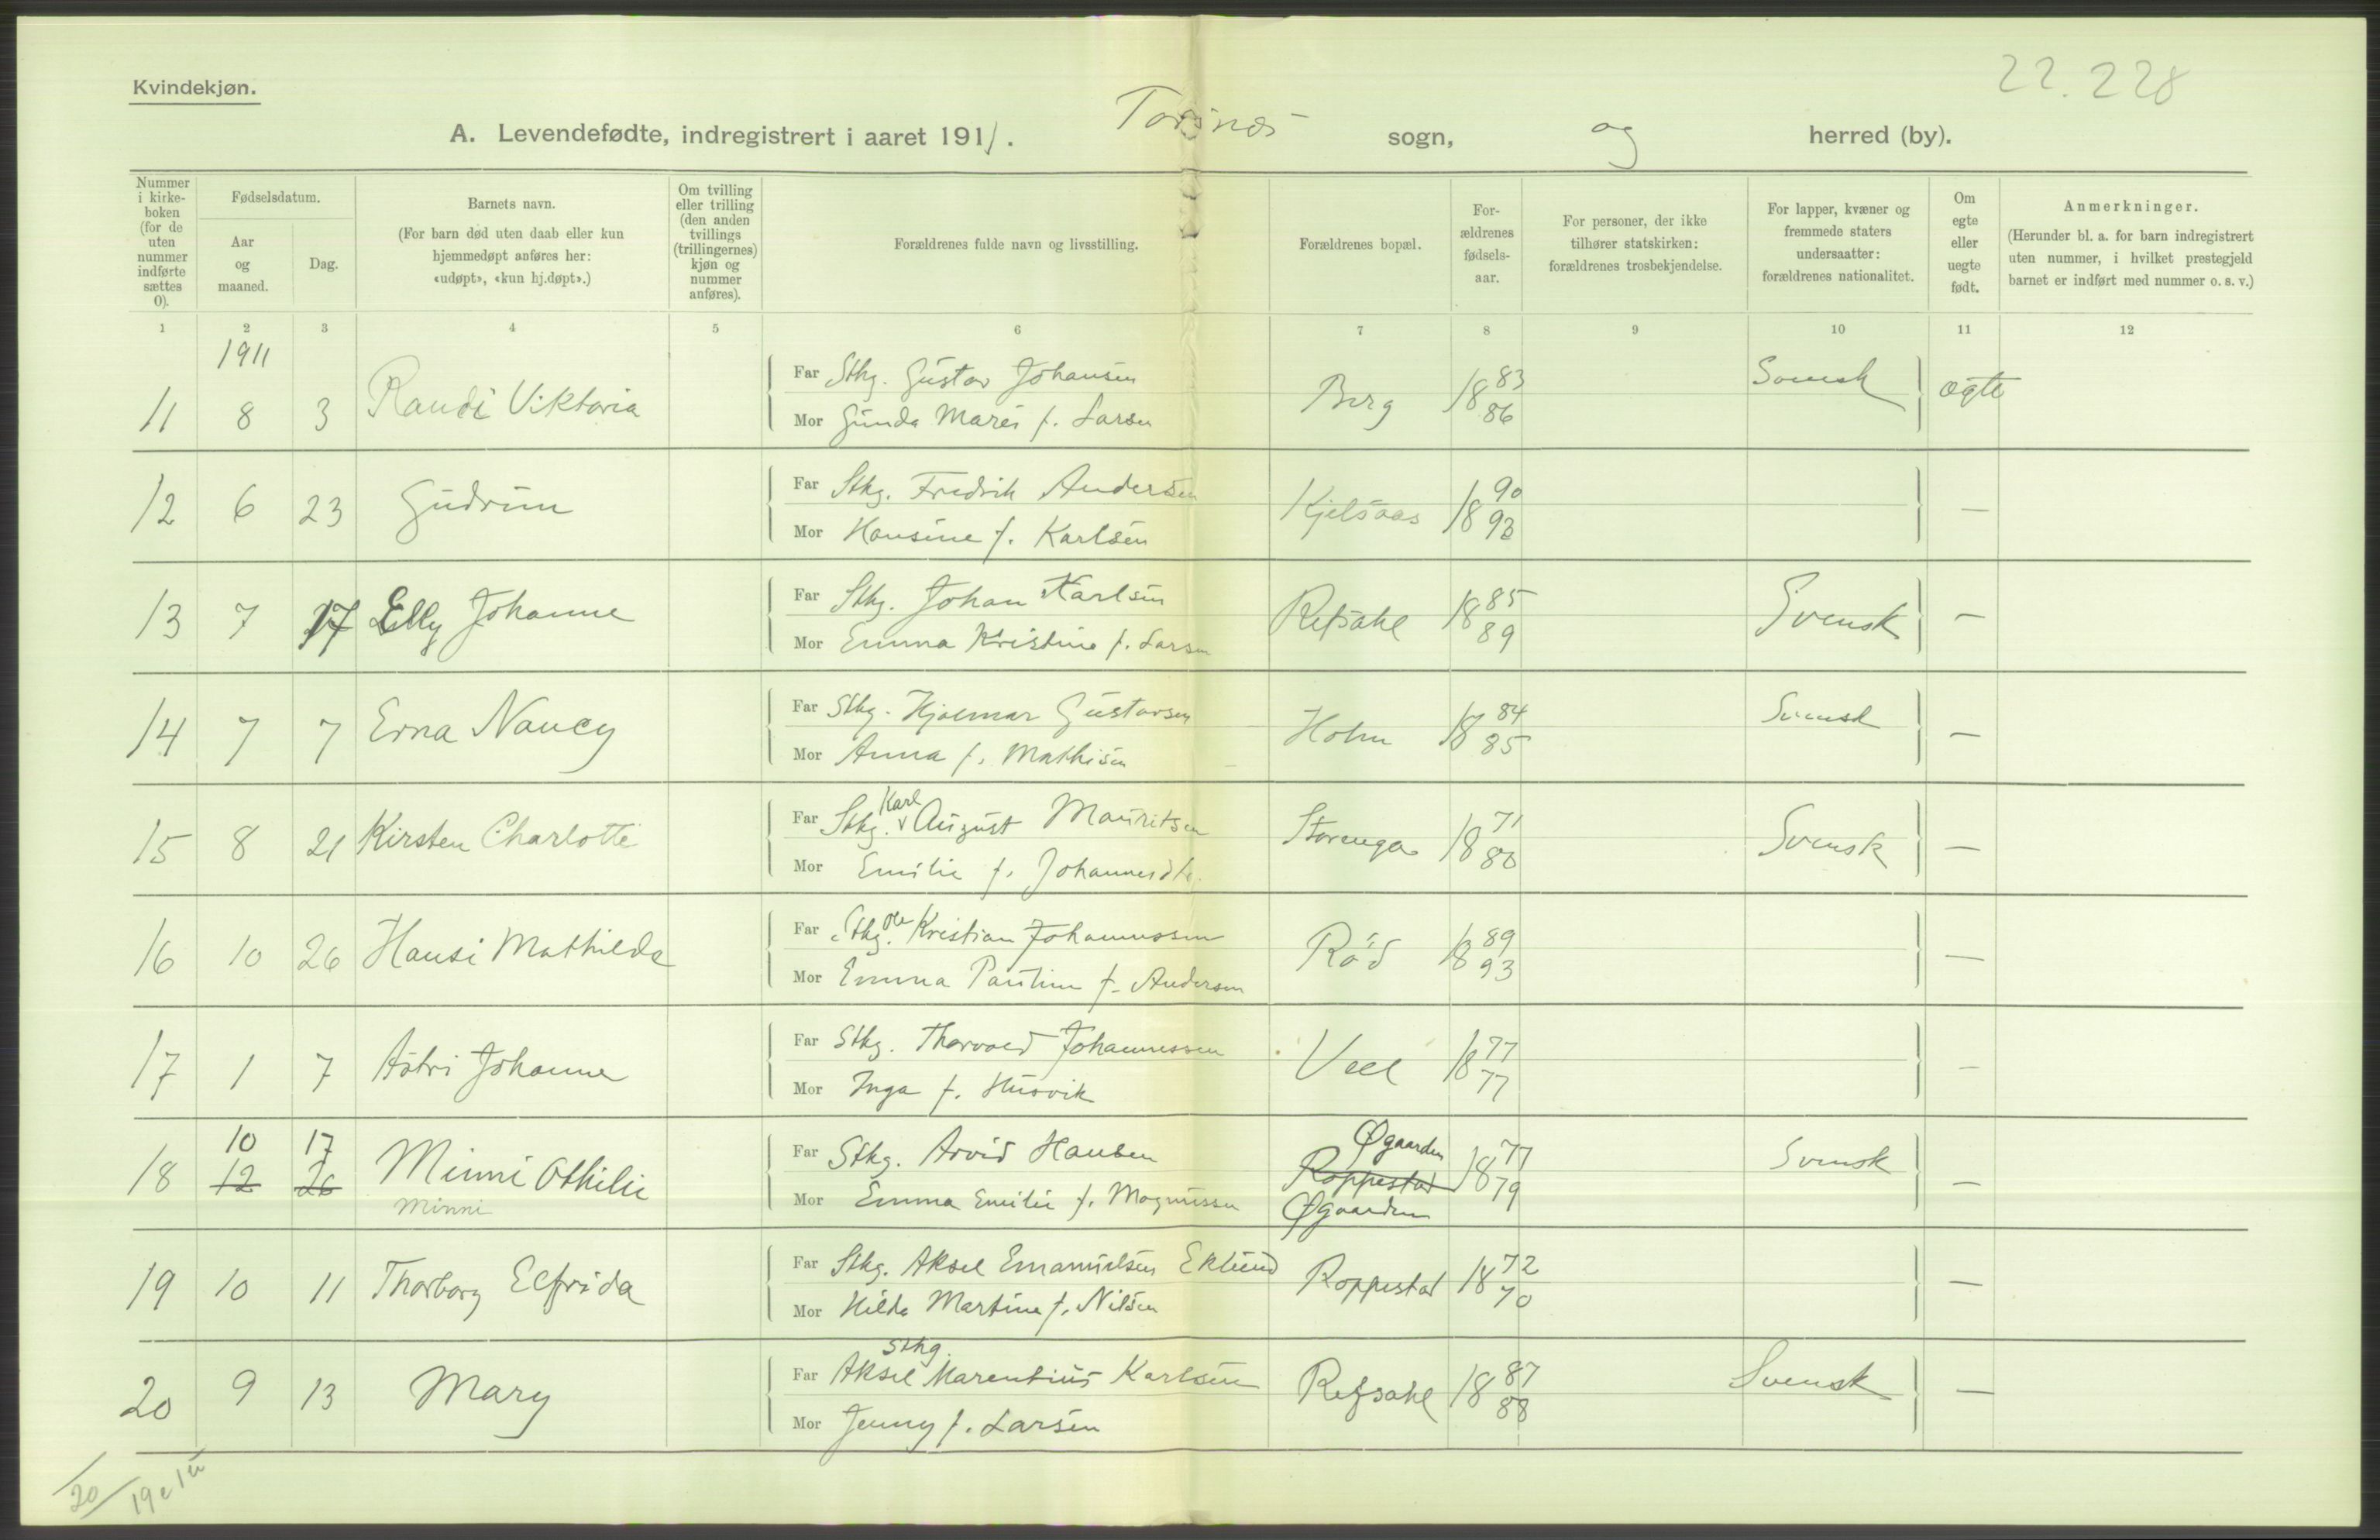 Kvindekjøn.
22.228
A. Levendefødte, indregistrert i aaret 1911. Torsnes sogn, og herred (by).
Nummer i kirke-boken (for de uten nummer indførte sættes 0).
Fødselsdatum.
Aar og maaned.
Dag.
Barnets navn.
(For barn død uten daab eller kun hjemmedøpt anføres her: «udøpt», «kun hj.døpt».)
Om tvilling eller trilling (den anden tvillings (trillingernes) kjøn og nummer anføres).
Forældrenes fulde navn og livsstilling.
Forældrenes bopæl.
For-ældrenes fødsels-aar.
For personer, der ikke tilhører statskirken: forældrenes trosbekjendelse.
For lapper, kvæner og fremmede staters undersaatter: forældrenes nationalitet.
Om egte eller uegte født.
Anmerkninger.
(Herunder bl. a. for barn indregistrert uten nummer, i hvilket prestegjeld barnet er indført med nummer o. s. v.)
1 2 3 4 5 6 7 8 9 10 11 12
1911
11 8 3 Randi Viktoria
Far Stkg. Gustav Johansen
Mor Gunda Marie f. Larsen
Berg 18 83 86 Svensk ægte
12 6 23 Gudrun
Far Stkg. Fredrik Andersen
Mor Hansine f. Karlsen
Kjelsaas 18 90 93 —
13 7 17 Elly Johanne
Far Stkg. Johan Karlsen
Mor Emma Kristine f. Larsen
Refsahl 18 85 89 Svensk —
14 7 7 Erna Nancy
Far Stkg. Hjalmar Gustavsen
Mor Anna f. Mathisen
Holm 18 84 85 Svensk —
15 8 21 Kirsten Charlotte
Far Stkg. Karl August Mauritsen
Mor Emilie f. Johannesdtr.
Storenga 18 71 80 Svensk —
16 10 26 Hansi Mathilde
Far Stkg. Ole Kristian Johannessen
Mor Emma Pauline f. Andersen
Rød 18 89 93 —
17 1 7 Astri Johanne
Far Stkg. Thorvald Johannessen
Mor Inga f. Husvik
Vell 18 77 77 —
10 17
18 12 26 Minni Othilie
Minni
Far Stkg. Arvid Hansen
Mor Emma Emilie f. Magnussen
Øgaarden
Roppestad
Øgaarden
18 77 79 Svensk —
19 10 11 Thorborg Elfrida
Far Stkg. Aksel Emanuelsen Eklund
Mor Hilda Martine f. Nilsen
Roppestad 18 72 70 —
20 9 13 Mary
Stkg.
Far Aksel Marentius Karlsen
Mor Jenny f. Larsen
Refsahl 18 87 88 Svensk —
20